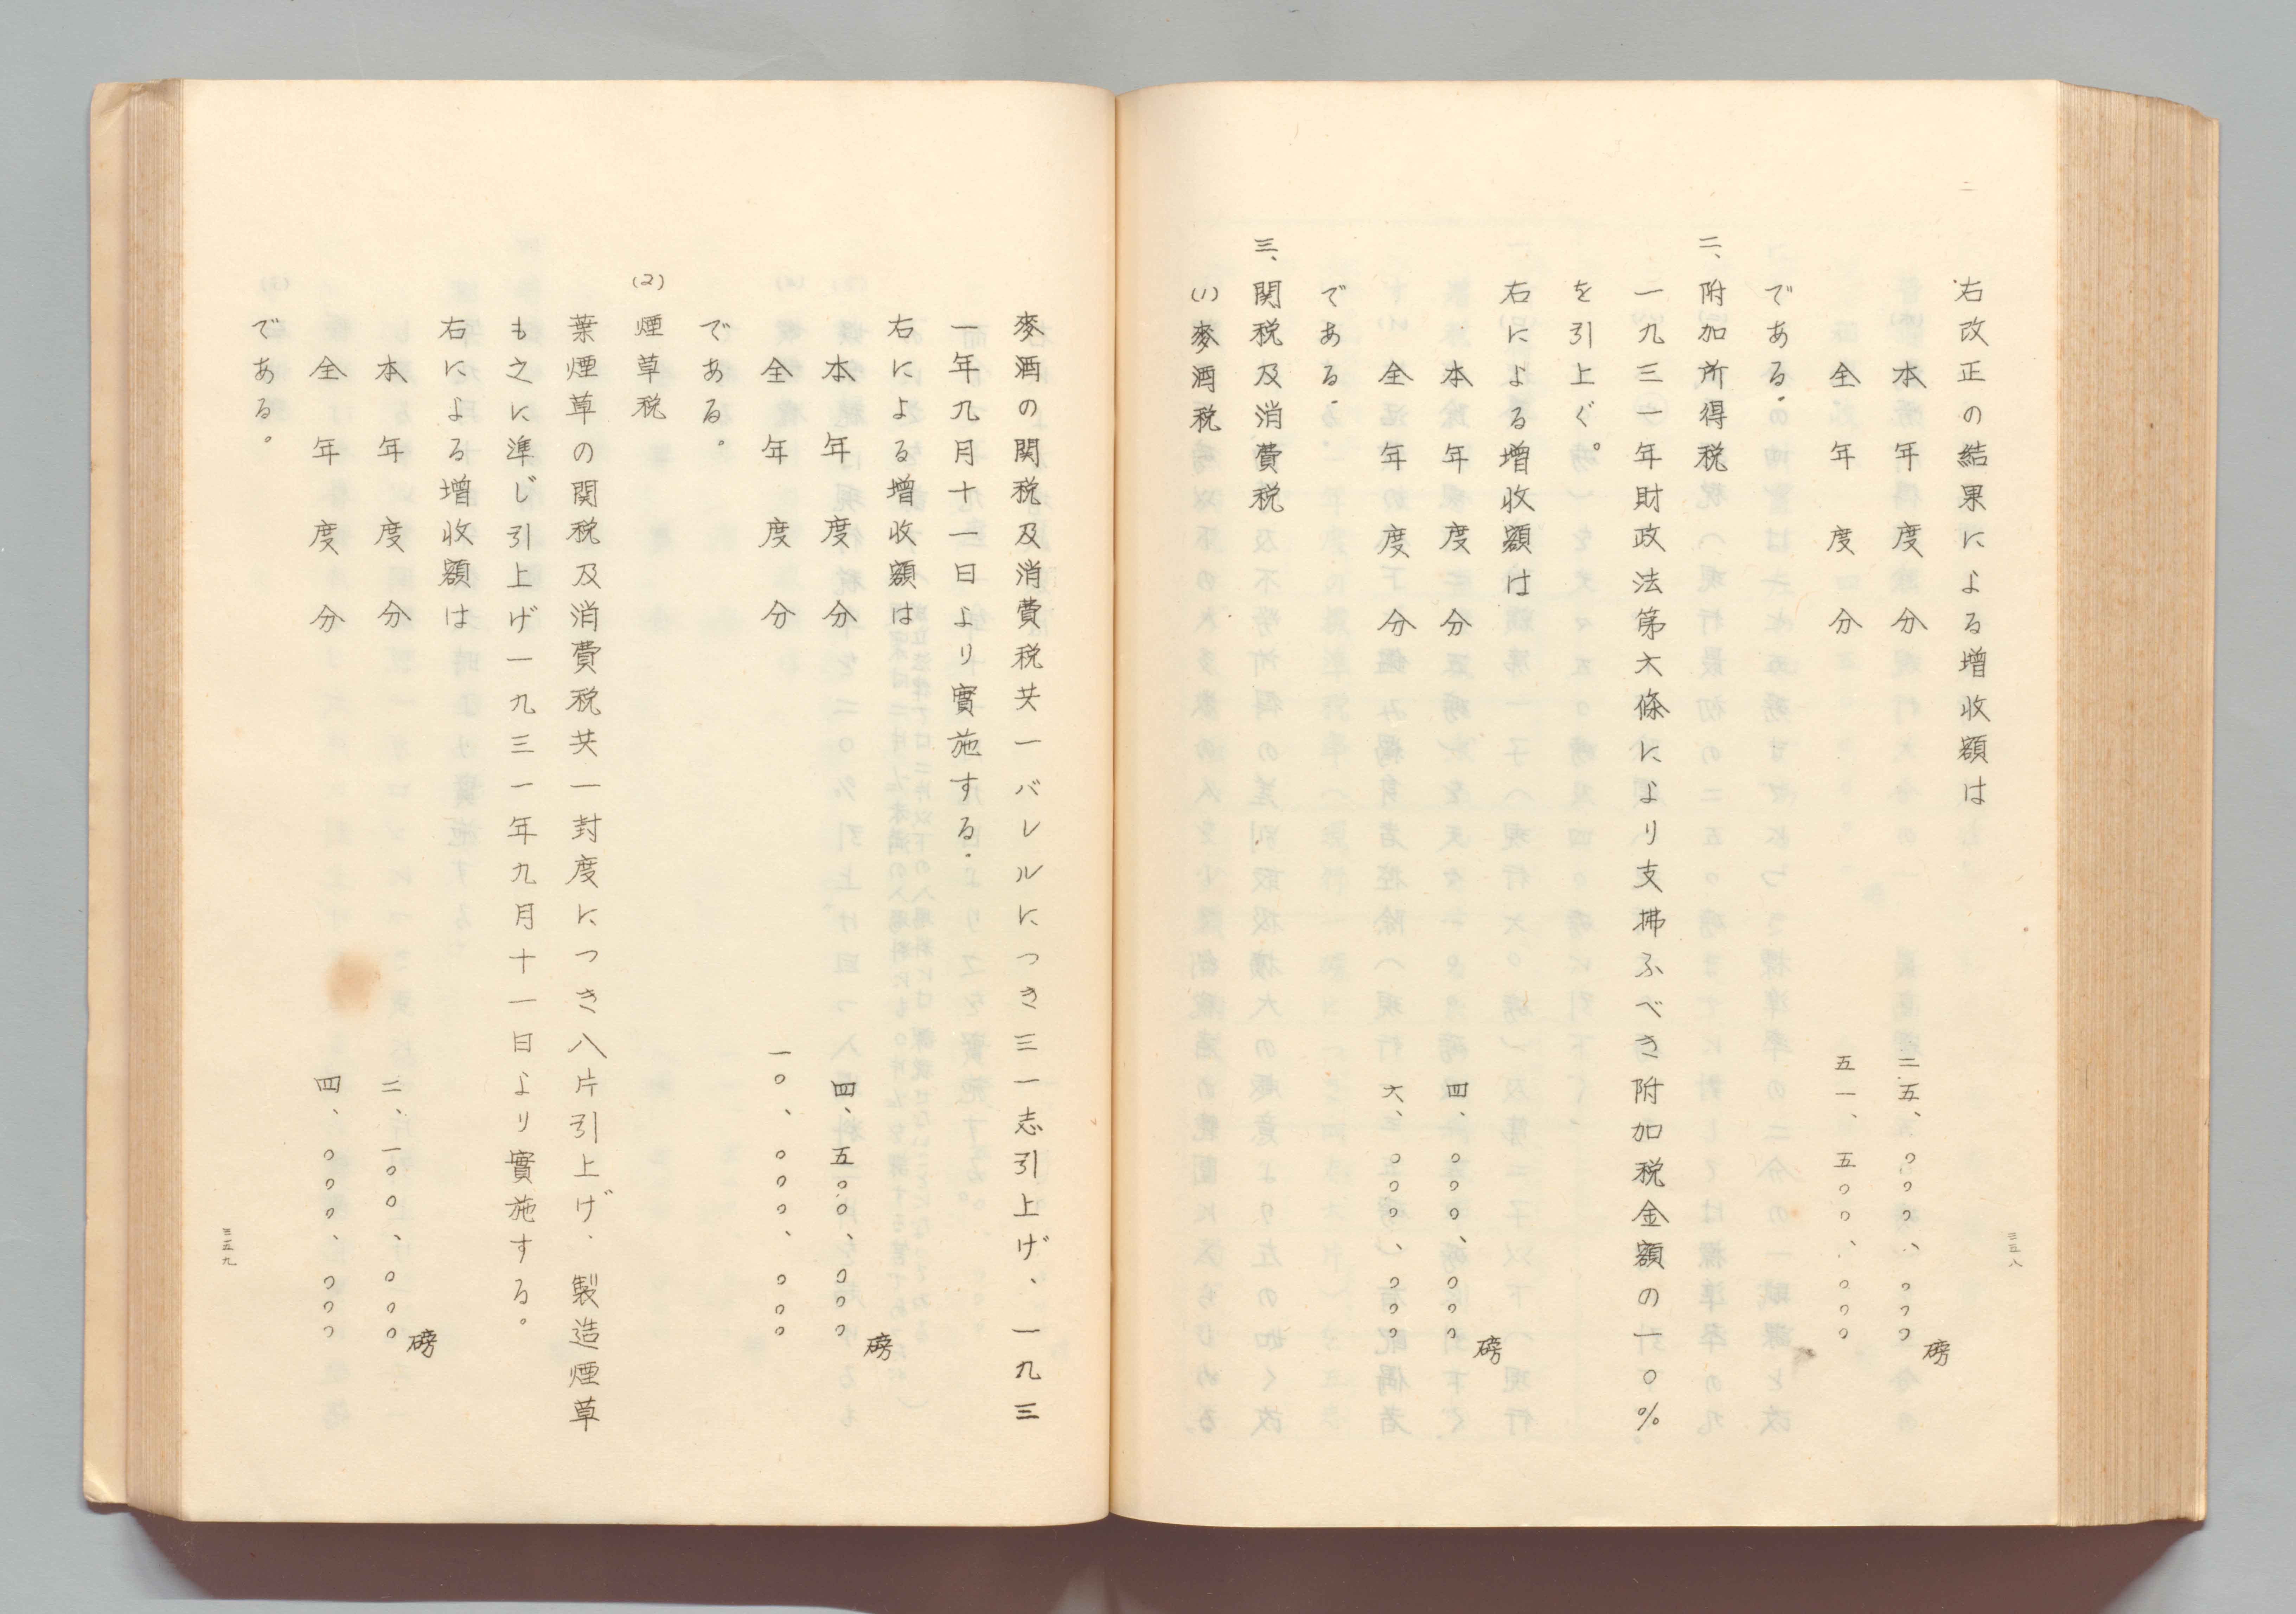 右改正の結果による増收額は
本年度分 二五、〇〇〇、〇〇〇磅
全年度分 五一、五〇〇、〇〇〇
である.
二、附加所得税
一九三一年財政法第六條により支拂ふべき附加税金額の一〇%
を引上ぐ。
右による増收額は
本年度分 四、〇〇〇、〇〇〇磅
全年度分 六、〇〇〇、〇〇〇
である.
三、関税及消費税
(1)麥酒税
三五八
麥酒の関税及消費税共一バレルにつき三一志引上げ、一九三
一年九月十一日より實施する.
右による増收額は
本年度分 四、五〇〇、〇〇〇磅
全年度分 一〇、〇〇〇、〇〇〇
である。
(2)煙草税
葉煙草の関税及消費税共一封度につき八片引上げ、製造煙草
も之に準じ引上げ一九三一年九月十一日より實施する。
右による増收額は
本年度分 二、一〇〇、〇〇〇磅
全年度分 四、〇〇〇、〇〇〇
である。
三五九